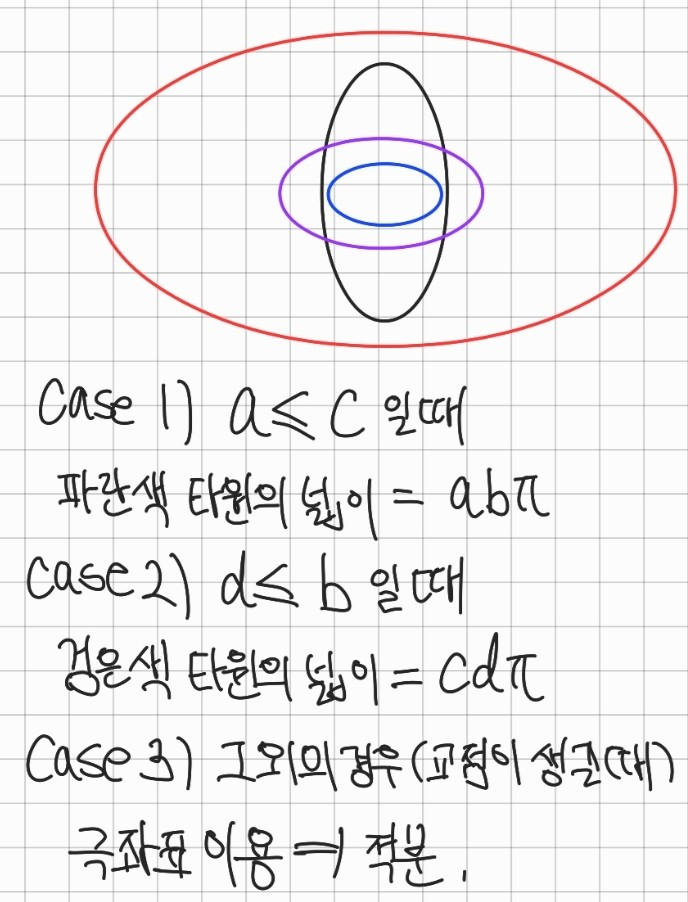 Case 1) a ≤ c 일때
파란색 타원의 넓이 = abπ
Case 2) d ≤ b 일때
검은색 타원의 넓이 = cdπ
Case 3) 그외의 경우(교점이 생길때)
극좌표 이용 ⇒ 적분.